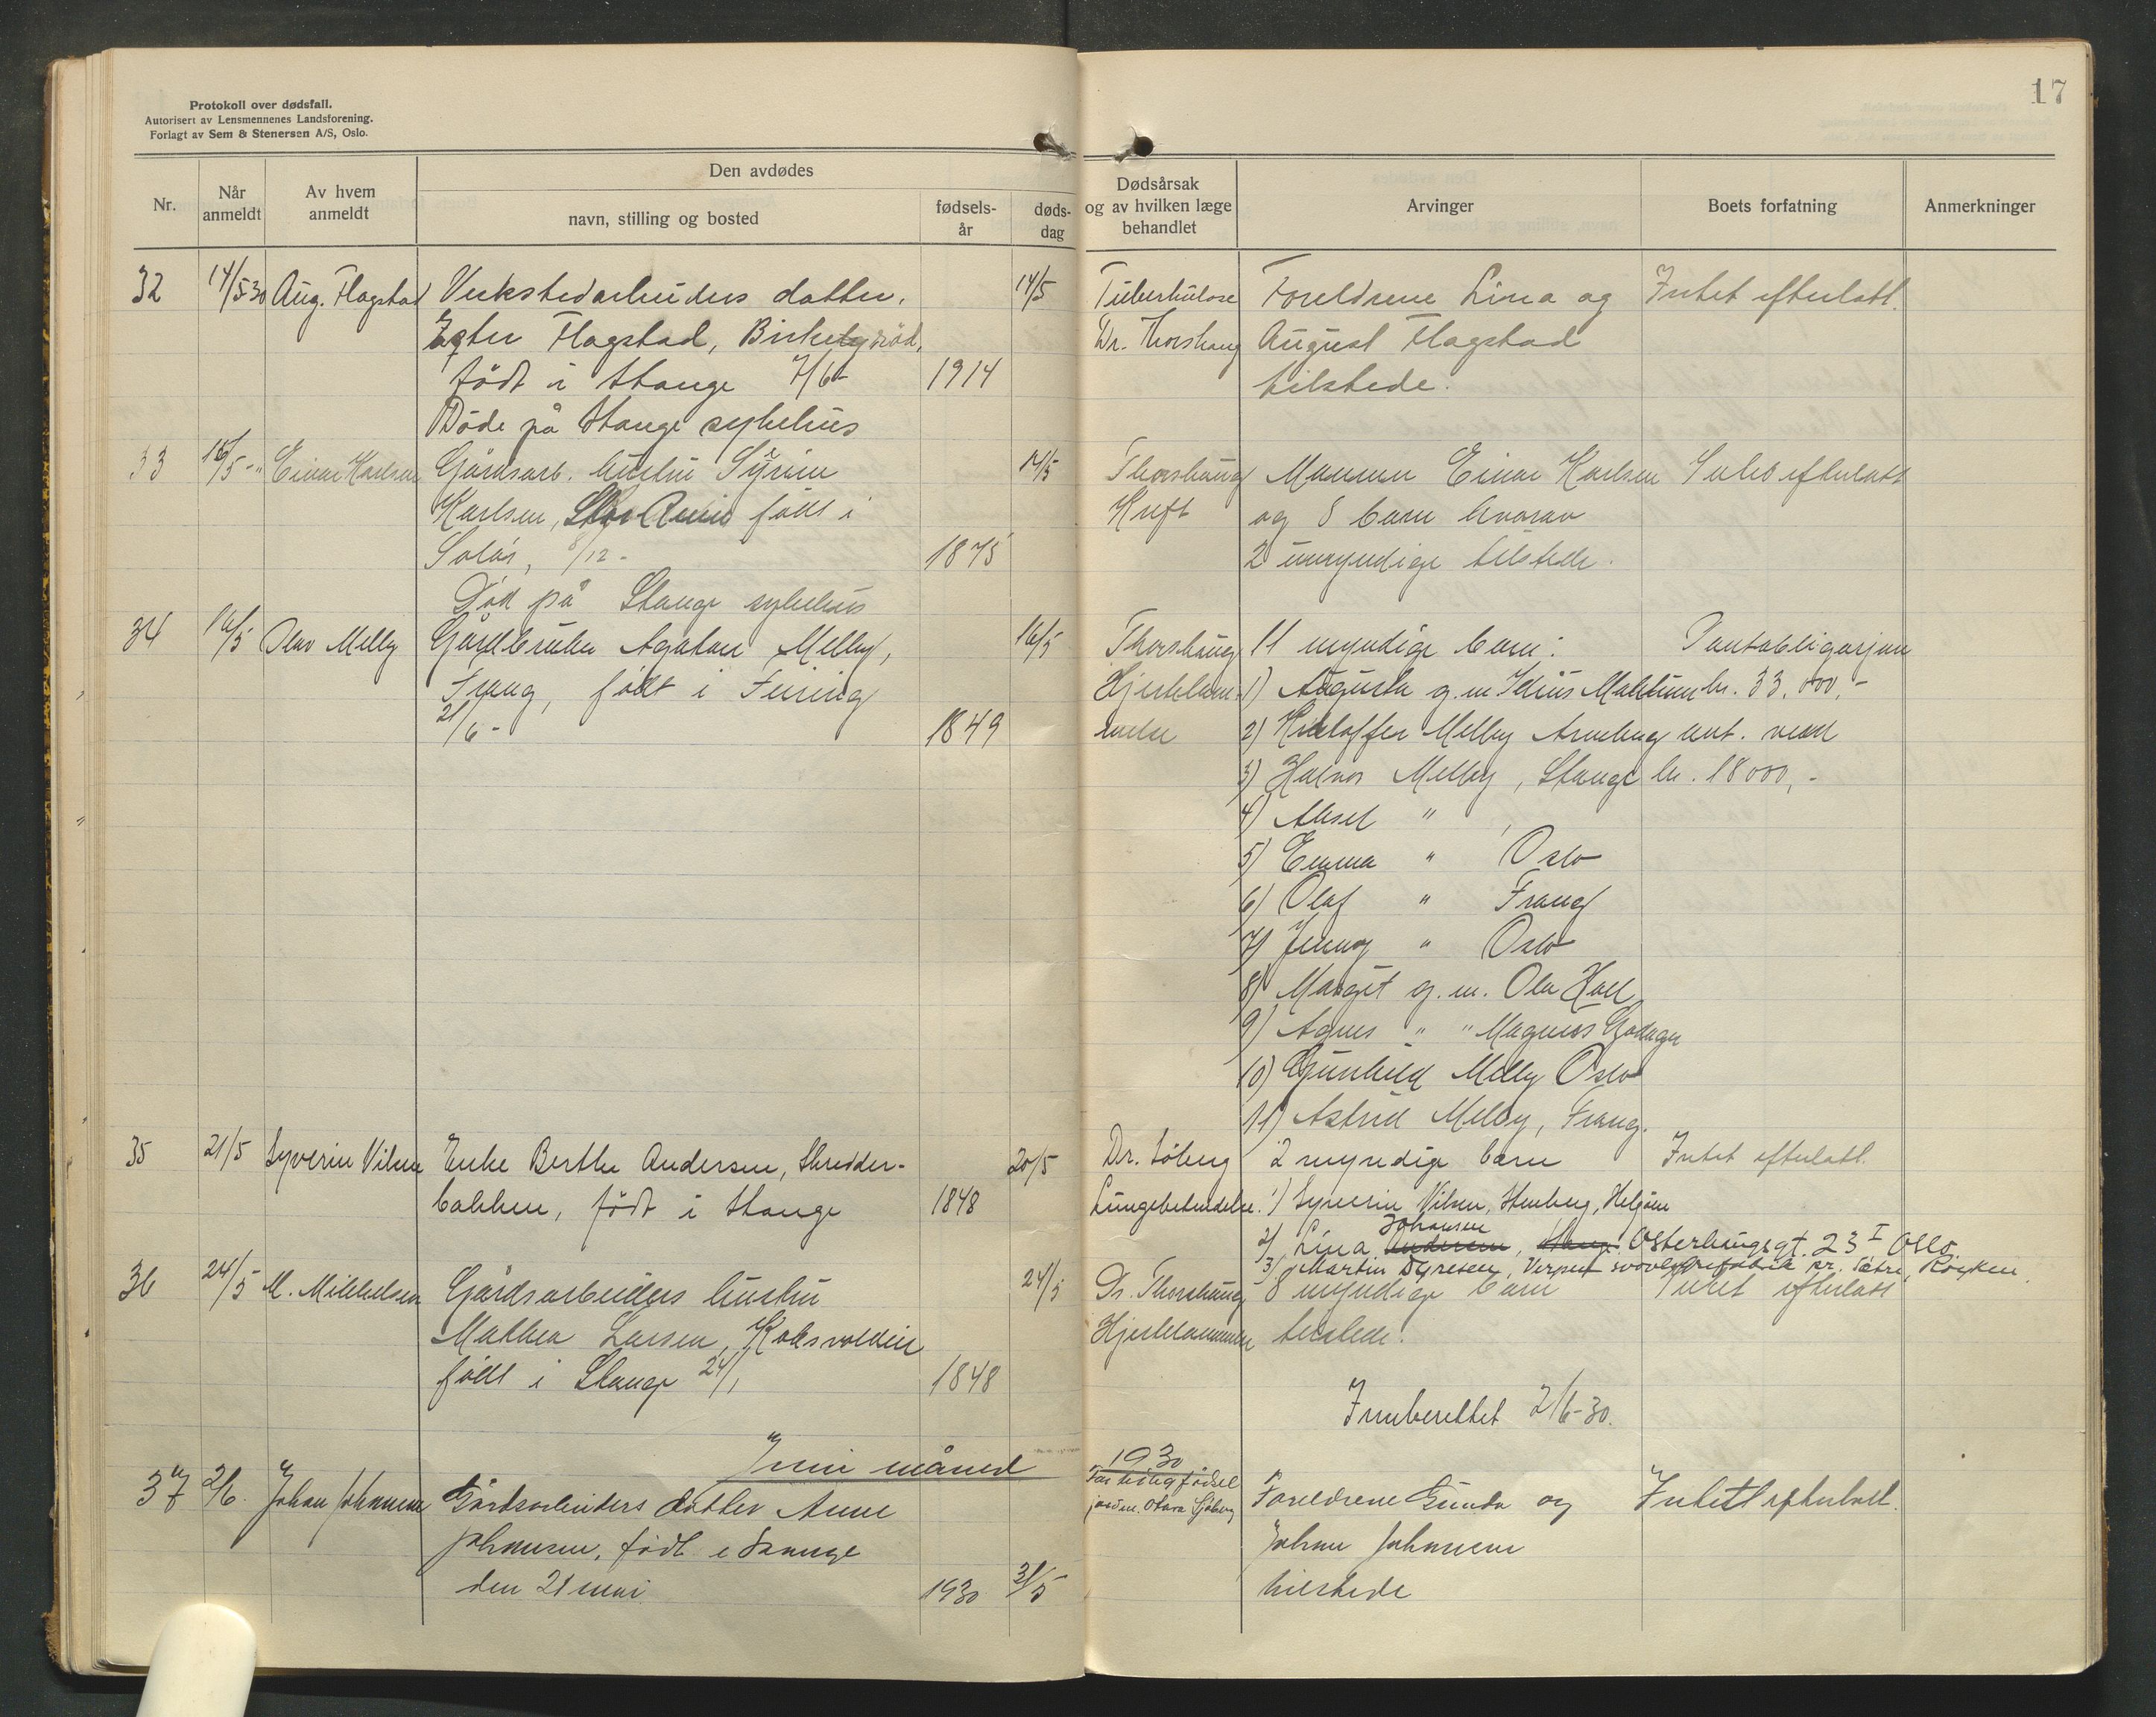 Protokoll over dødsfall.
Autorisert av Lensmennenes Landsforening.
Forlagt av Sem & Stenersen A/S, Oslo.
17
Nr.
Når anmeldt
Av hvem anmeldt
Den avdødes
navn, stilling og bosted
fødsels-år
døds-dag
Dødsårsak og av hvilken læge behandlet
Arvinger
Boets forfatning
Anmerkninger
32 14/5 30 Aug. Flagstad Verkstedarbeiders datter, 14/5 Tuberkulose Foreldrene Lina og Intet efterlatt.
Ester Flagstad, Dr. Thorshaug August Flagstad
født i Stange 7/6- 1914 tilstede.
Døde på Stange sykehus
33 16/5 -"- Einar Karlsen Gårdsarb. hustru 14/5 Thorshaug Mannen Einar Karlsen Intet efterlatt
Karlsen, født i Kreft og 8 barn hvorav
Solør, 8/12 - 1875 2 umyndige tilstede.
Død på Stange sykehus
34 16/5 Olav Melby Gårdbruker Agaton Melby, 16/5 Thorshaug 11 myndige barn: Pantobligasjon
Frang, født i Hjertelam- 1) Augusta g.m. kr. 33.000,-
21/6 - 1849 melse 2) Kristoffer Melby ant. verd
3) Halvor Melby, Stange kr. 18000,-
4) Aksel "
5) Emma " Oslo
6) Olaf " Frang
7) Jenny " Oslo
8) Margit g.m. Ola Hall
9) Agnes " " Magnus Godager
10) Gunhild Melby Oslo
11) Astrid Melby, Frang.
35 21/5 Syverin Vilsen Enke Berthe Andersen, Skredder- 20/5 Dr. Söberg 2 myndige barn Intet efterlatt.
bakken, født i Stange 1848 Lungebetendelse. 1) Syverin Vilsen, Stenberg, Helgøen
Johansen
2) Lina Andersen, Stange Østerlungsgt. 23 I Oslo.
3) Martin Syversen, Verpen svovlsyrefabrik pr. Sætre, Røyken.
36 24/5 M. Mikkelsen Gårdsarbeiders hustru 24/5 Dr. Thorshaug 8 myndige barn Intet efterlatt
Mathea Larsen, Koksvoldeie Hjertelammelse tilstede.
født i Stange 24/1 1848
Innberettet 2/6-30.
Juni måned 1930
37 2/6. Johan Johansen Gårdsarbeiders datter Anne For tidlig fødsel Foreldrene Gunda og Intet efterlatt.
Johansen, født i Stange jordm. Olava Sjøberg Johan Johansen
den 21 mai 1930 31/5 tilstede